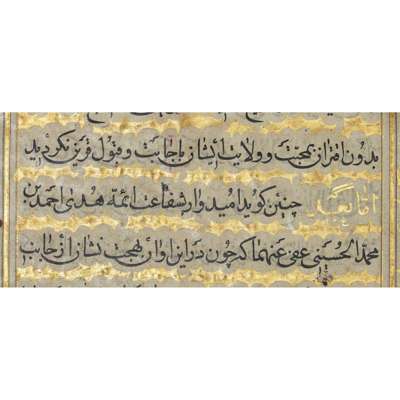 بدون اقتران بمحبت و ولایت ایشان باجابت و قبول قرین نکردید
اما بعد چنین کوید امیدوار شفاعت ائمه هدی احمد بن
محمد الحسینی عفی عنهما که چون در این اوان بهجت نشان از جانب